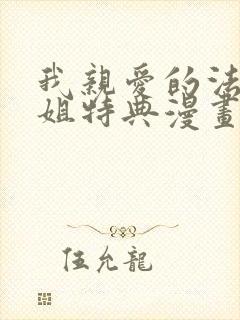 我親愛的法
姐特典漫畫
伍允龍